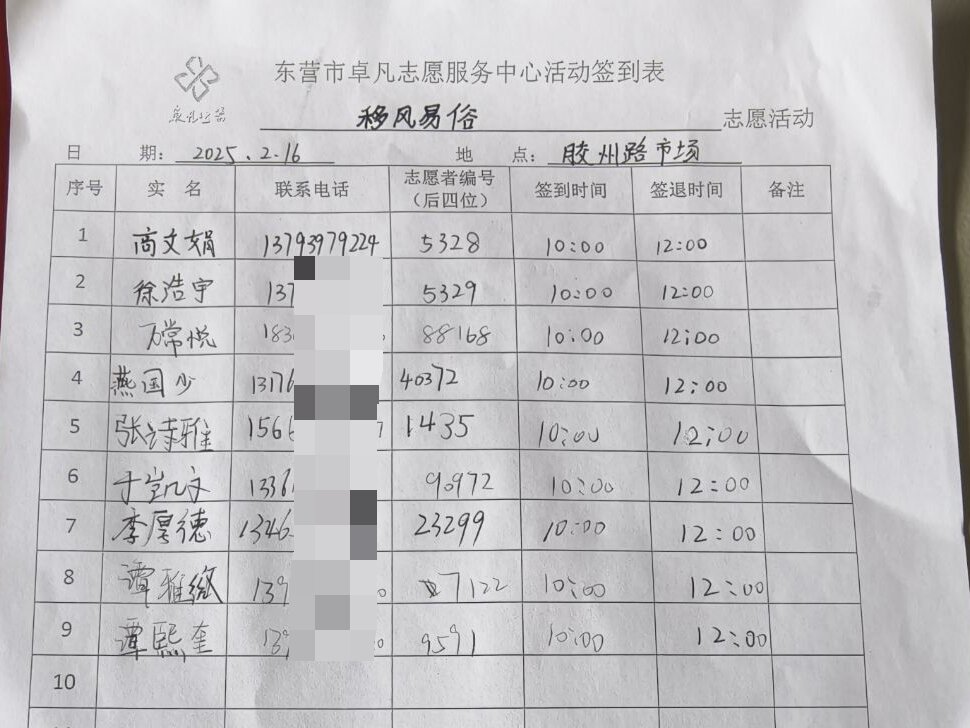 东营市卓凡志愿服务中心活动签到表
移风易俗 志愿活动
日 期: 2025.2.16 地 点: 胶州路市场
序号 实 名 联系电话 志愿者编号（后四位） 签到时间 签退时间 备注
1 商文娟 13793979224 5328 10:00 12:00
2 徐浩宇 137 5329 10:00 12:00
3 万常悦 183 88168 10:00 12:00
4 燕国少 1317 40372 10:00 12:00
5 张诗雅 156 1435 10:00 12:00
6 于凯文 1336 90972 10:00 12:00
7 李厚德 1346 23299 10:00 12:00
8 谭雅 139 0 7122 10:00 12:00
9 谭熙奎 139 0 9591 10:00 12:00
10